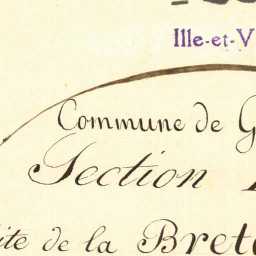 Ille-et-V
Commune de G
Section
ite de la Bret